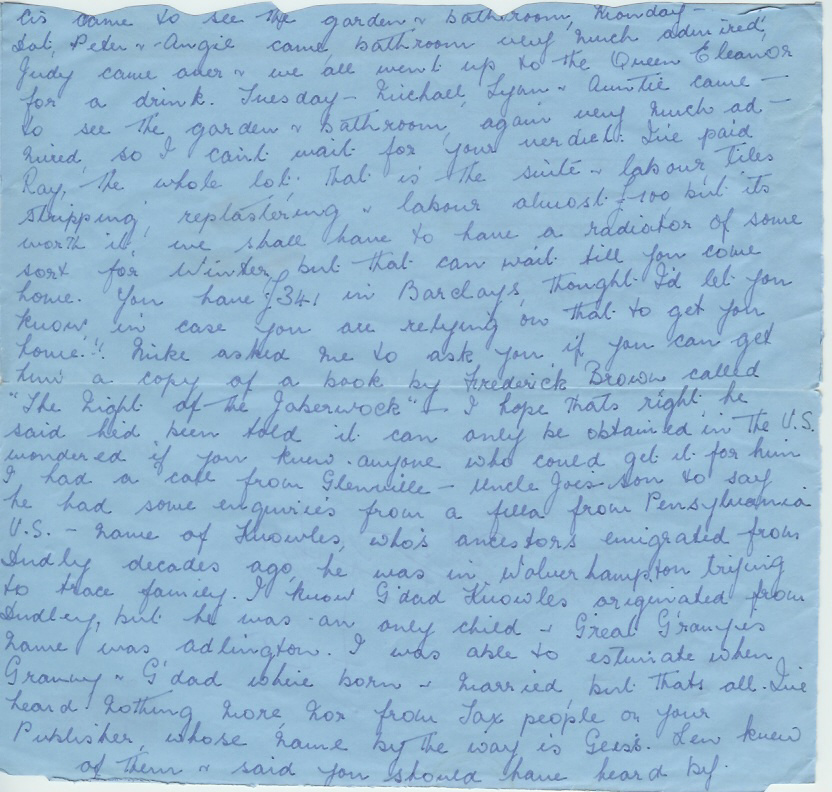 Cis came to see the garden & bathroom, Monday –
Dot, Peter & Angie came bathroom very much admired,
Judy came over & we all went up to the Queen Eleanor
for a drink. Tuesday – Michael, Lynn & Auntie came –
to see the garden & bathroom, again very much ad –
mired, so I can't wait for your verdict. I've paid
Ray, the whole lot. that is the suite & labour, tiles
stripping, replastering & labour almost £100 but its
worth it, we shall have to have a radiator of some
sort for Winter, but that can wait till you come
home. You have £341 in Barclays, thought I'd let you
know, in case you are relying on that to get you
home.!! Mike asked me to ask you if you can get
him a copy of a book by Frederick Brown called
"The Night of the Jaberwock" – I hope thats right, he
said he'd been told it can only be obtained in the U.S.
wondered if you knew anyone who could get it for him
I had a call from Glenville – Uncle Joes son to say
he had some enquiries from a fella from Pensylvania
U.S. – name of Knowles, who's ancestors emigrated from
Dudly decades ago, he was in Wolverhampton trying
to trace family. I know G'dad Knowles originated from
Dudley, but he was an only child & Great Grannies
name was adlington. I was able to estimate when
Granny & G'dad where born & married but thats all. I've
heard nothing more nor from Tax people or your
Publisher, whose name by the way is Geiss. Len knew
of them & said you should have heard by